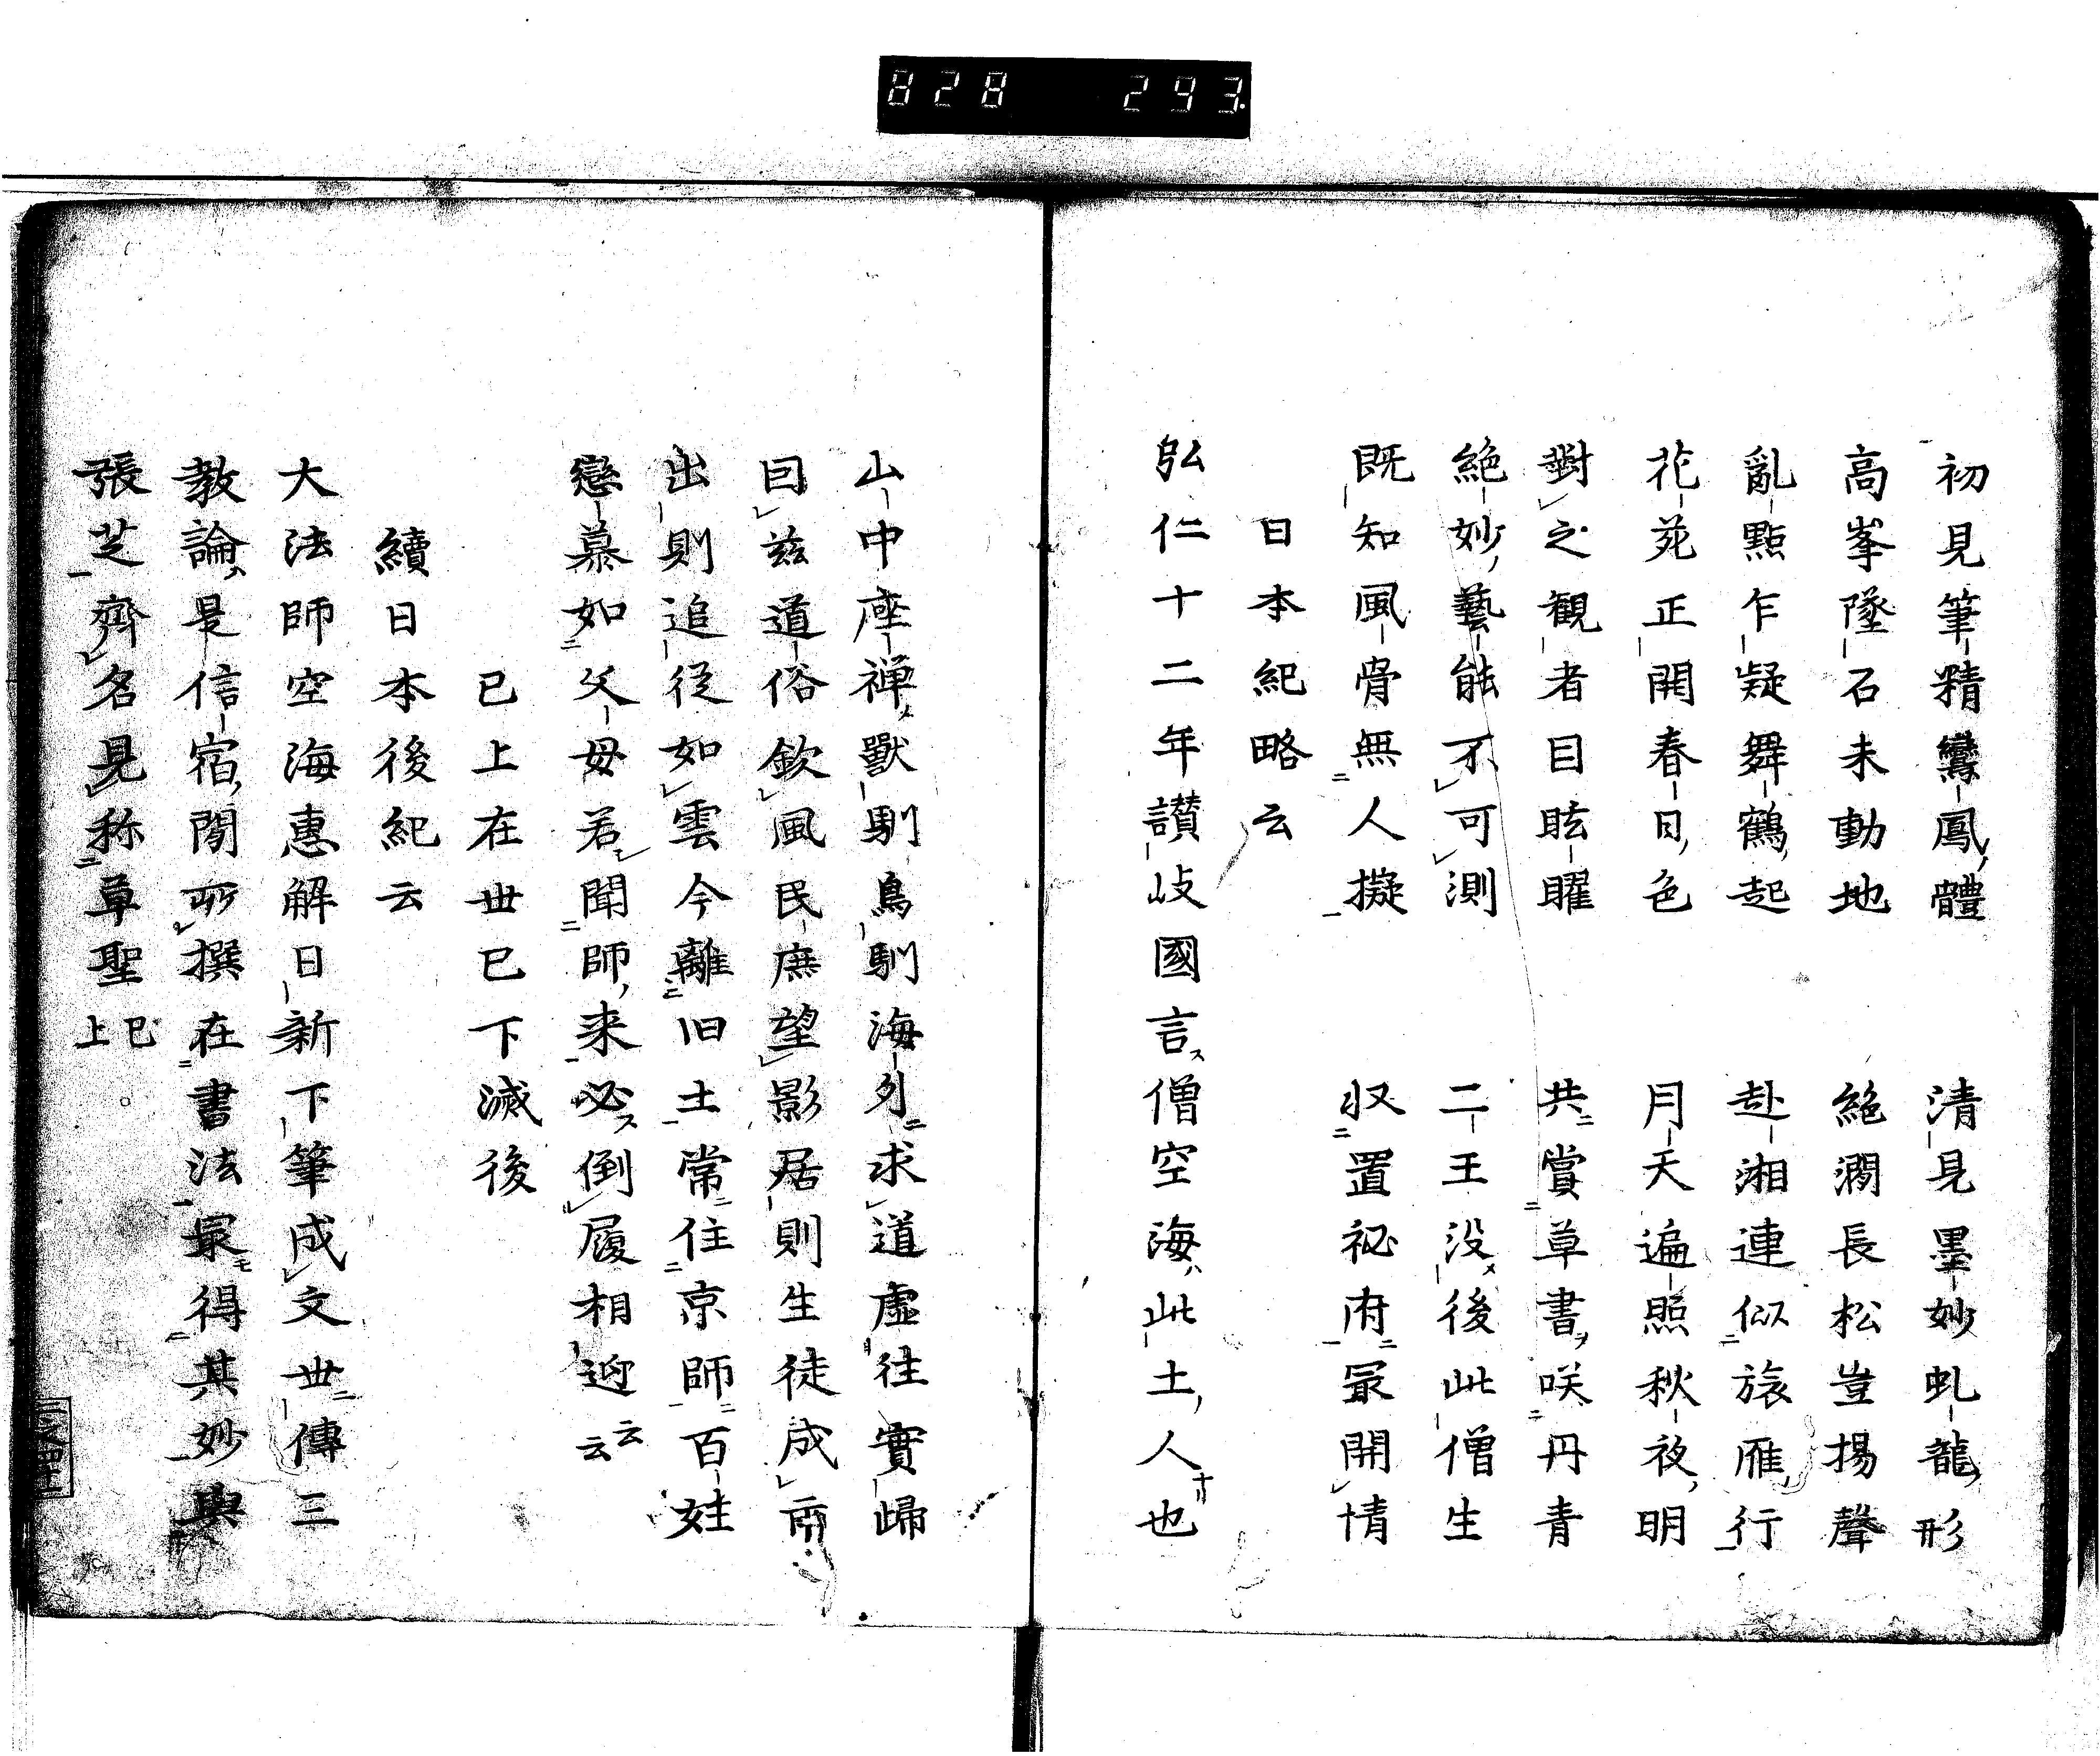 828 293
初見筆精鸞鳳體 清見墨妙虬龍形
高峯墜石未動地 絶澗長松豈揚聲
亂點乍凝舞鶴起 赴湘連似旅雁行
花苑正開春日色 月天遍照秋夜明
對之観者目眩曜 共賞草書咲丹青
絶妙藝能不可測 二王没後此僧生
既知風骨無人擬 収置祕府最開情
日本紀略云
弘仁十二年讃岐國言僧空海此土人也
山中座禅獸馴鳥馴海外求道虚往實歸
曰茲道俗欽風民庶望影居則生徒成市
出則追従如雲今離旧土常住京師百姓
戀慕如父母若聞師来必倒履相迎云云
已上在世已下滅後
續日本後紀云
大法師空海惠解日新下筆成文世傳三
教論是信宿間所撰在書法最得其妙與
張芝齊名見称草聖已上